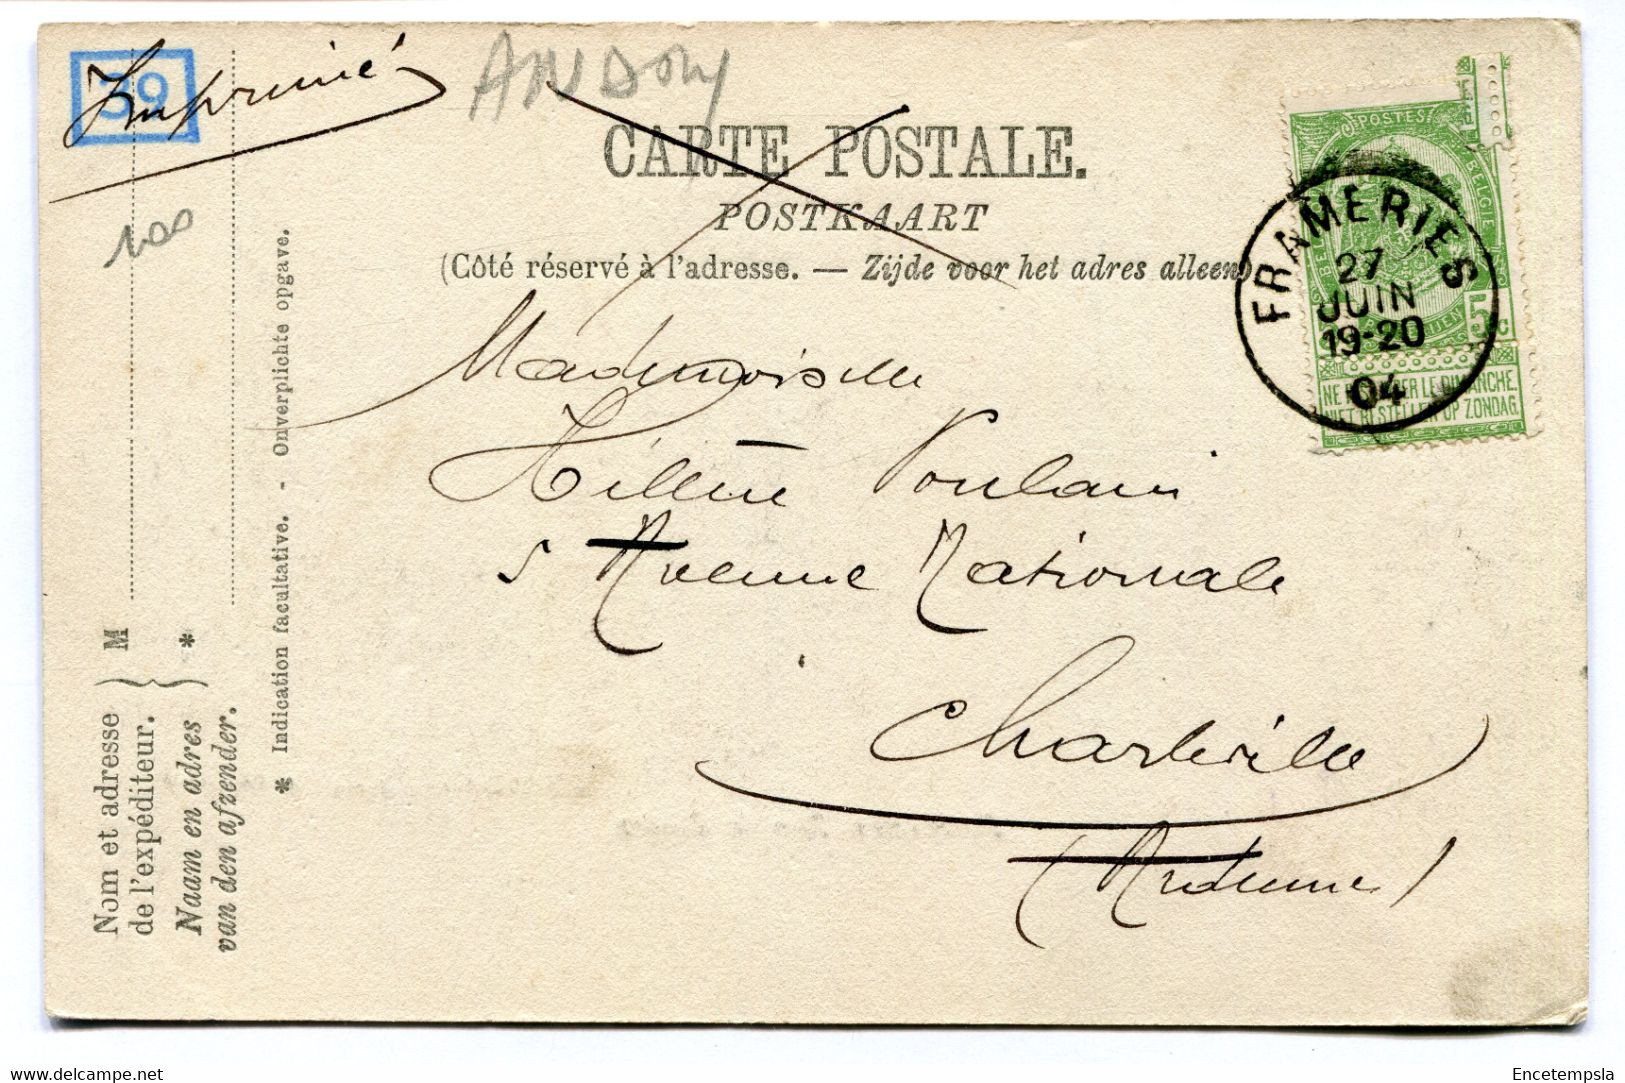 39
Imprimé
100
CARTE POSTALE.
POSTKAART
(Côté réservé à l'adresse. — Zijde voor het adres alleen)
POSTES
BELGIE
FRAMERIES
27
JUIN
19-20
04
5 C
NE PAS LIVRER LE DIMANCHE.
NIET BESTELLEN OP ZONDAG.
Mademoiselle
Hélène Poulain
5 Avenue Nationale
Charleville
(Ardennes)
M
*
Nom et adresse
de l'expéditeur.
Naam en adres
van den afzender.
* Indication facultative. - Onverplichte opgave.
www.delcampe.net
Encetempsla